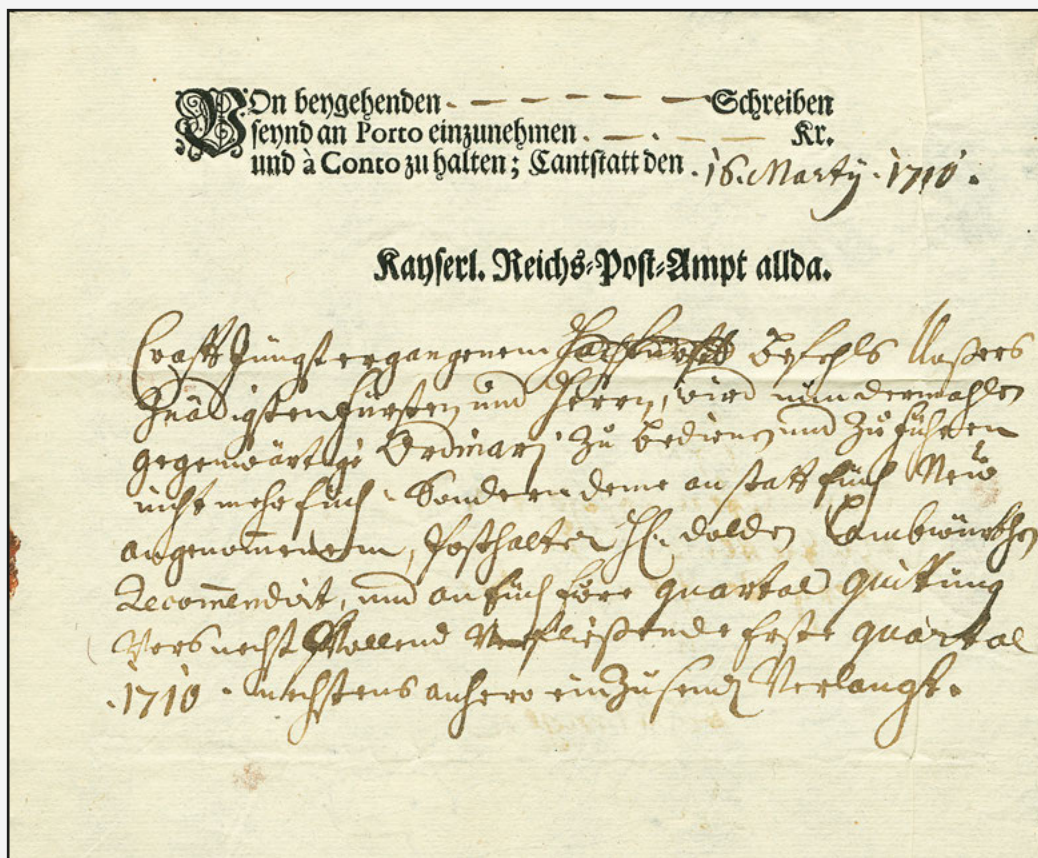 Von beygehenden . — — — — — — Schreiben
seynd an Porto einzunehmen . — . — — Kr.
und à Conto zu halten; Cantstatt den . 16. Martÿ . 1710 .
Kayserl. Reichs-Post-Ampt allda.
Crafft Jüngst ergangenem Befehls Unßers
Gnädigsten Fürsten und Herrn, wird nun dermahlen
gegenwärtige Ordinari zu bedienen und zu führen
nicht mehr Euch . Sondern deme an statt Euch Neü
angenom̄enem, Posthalter H. dolden
Recom̄endirt, und an Euch Ihre quartal Quittung
verfließende Erste quartal
. 1710 . nechstens anhero einzusenden Verlangt.